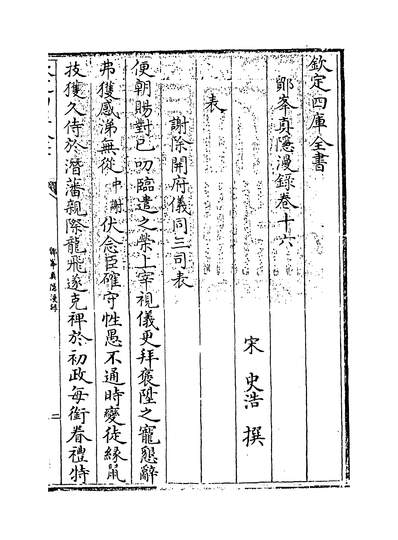 欽定四庫全書
鄮峯真隱漫錄卷十六
宋 史浩 撰
表
謝除開府儀同三司表
便朝賜對已叨臨遣之榮上宰視儀更拜褒陞之寵懇辭
弗獲感涕無從中謝伏念臣確守性愚不通時變徒緣鼠
技獲久侍於潛藩親際龍飛遂克裨於初政每銜眷禮特
鄮峯真隱漫録